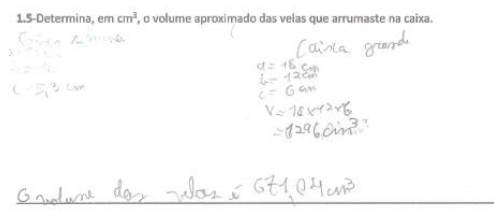 1.5-Determina, em cm³, o volume aproximado das velas que arrumaste na caixa.
Caixa
Caixa grande
a = 18 cm
b = 12 cm
c = 6 cm
c 5,3 cm
V = 18x12x6
= 1296 cm³
O volume das velas é 671,04 cm³